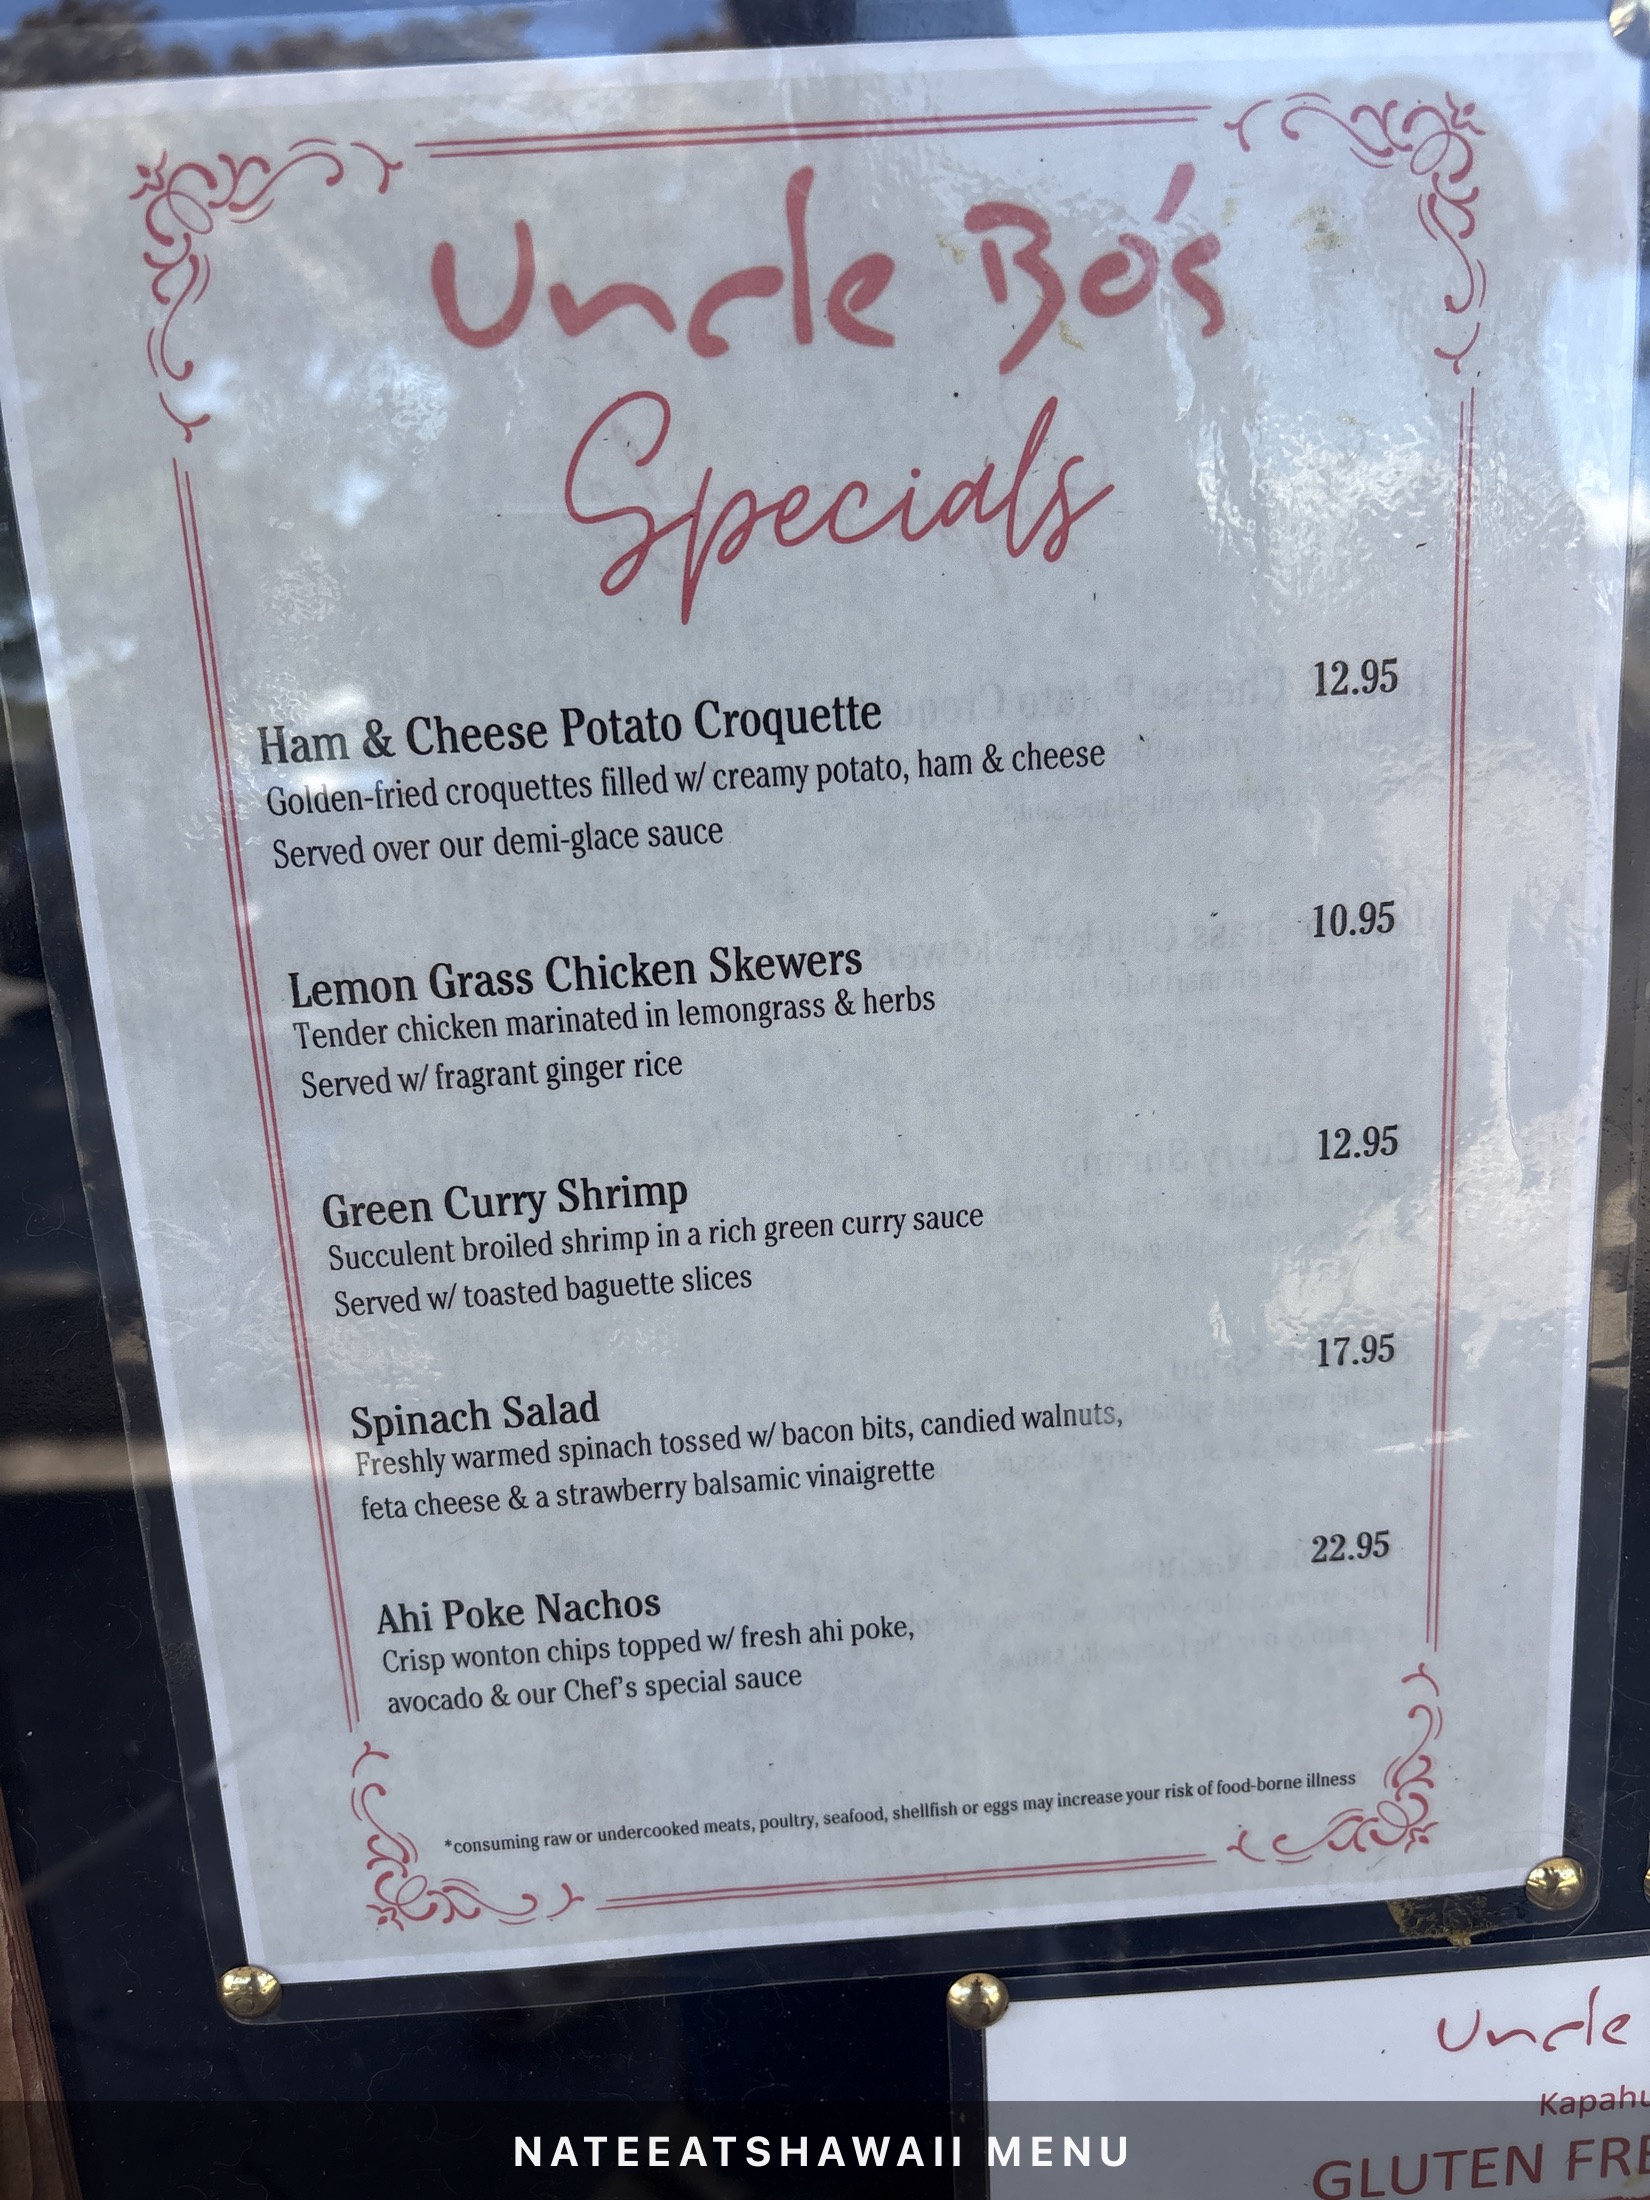 Uncle Bo's
Specials
Ham & Cheese Potato Croquette 12.95
Golden-fried croquettes filled w/ creamy potato, ham & cheese
Served over our demi-glace sauce
Lemon Grass Chicken Skewers 10.95
Tender chicken marinated in lemongrass & herbs
Served w/ fragrant ginger rice
Green Curry Shrimp 12.95
Succulent broiled shrimp in a rich green curry sauce
Served w/ toasted baguette slices
Spinach Salad 17.95
Freshly warmed spinach tossed w/ bacon bits, candied walnuts,
feta cheese & a strawberry balsamic vinaigrette
Ahi Poke Nachos 22.95
Crisp wonton chips topped w/ fresh ahi poke,
avocado & our Chef's special sauce
*consuming raw or undercooked meats, poultry, seafood, shellfish or eggs may increase your risk of food-borne illness
Uncle
Kapahu
GLUTEN FRE
NATEEATSHAWAII MENU